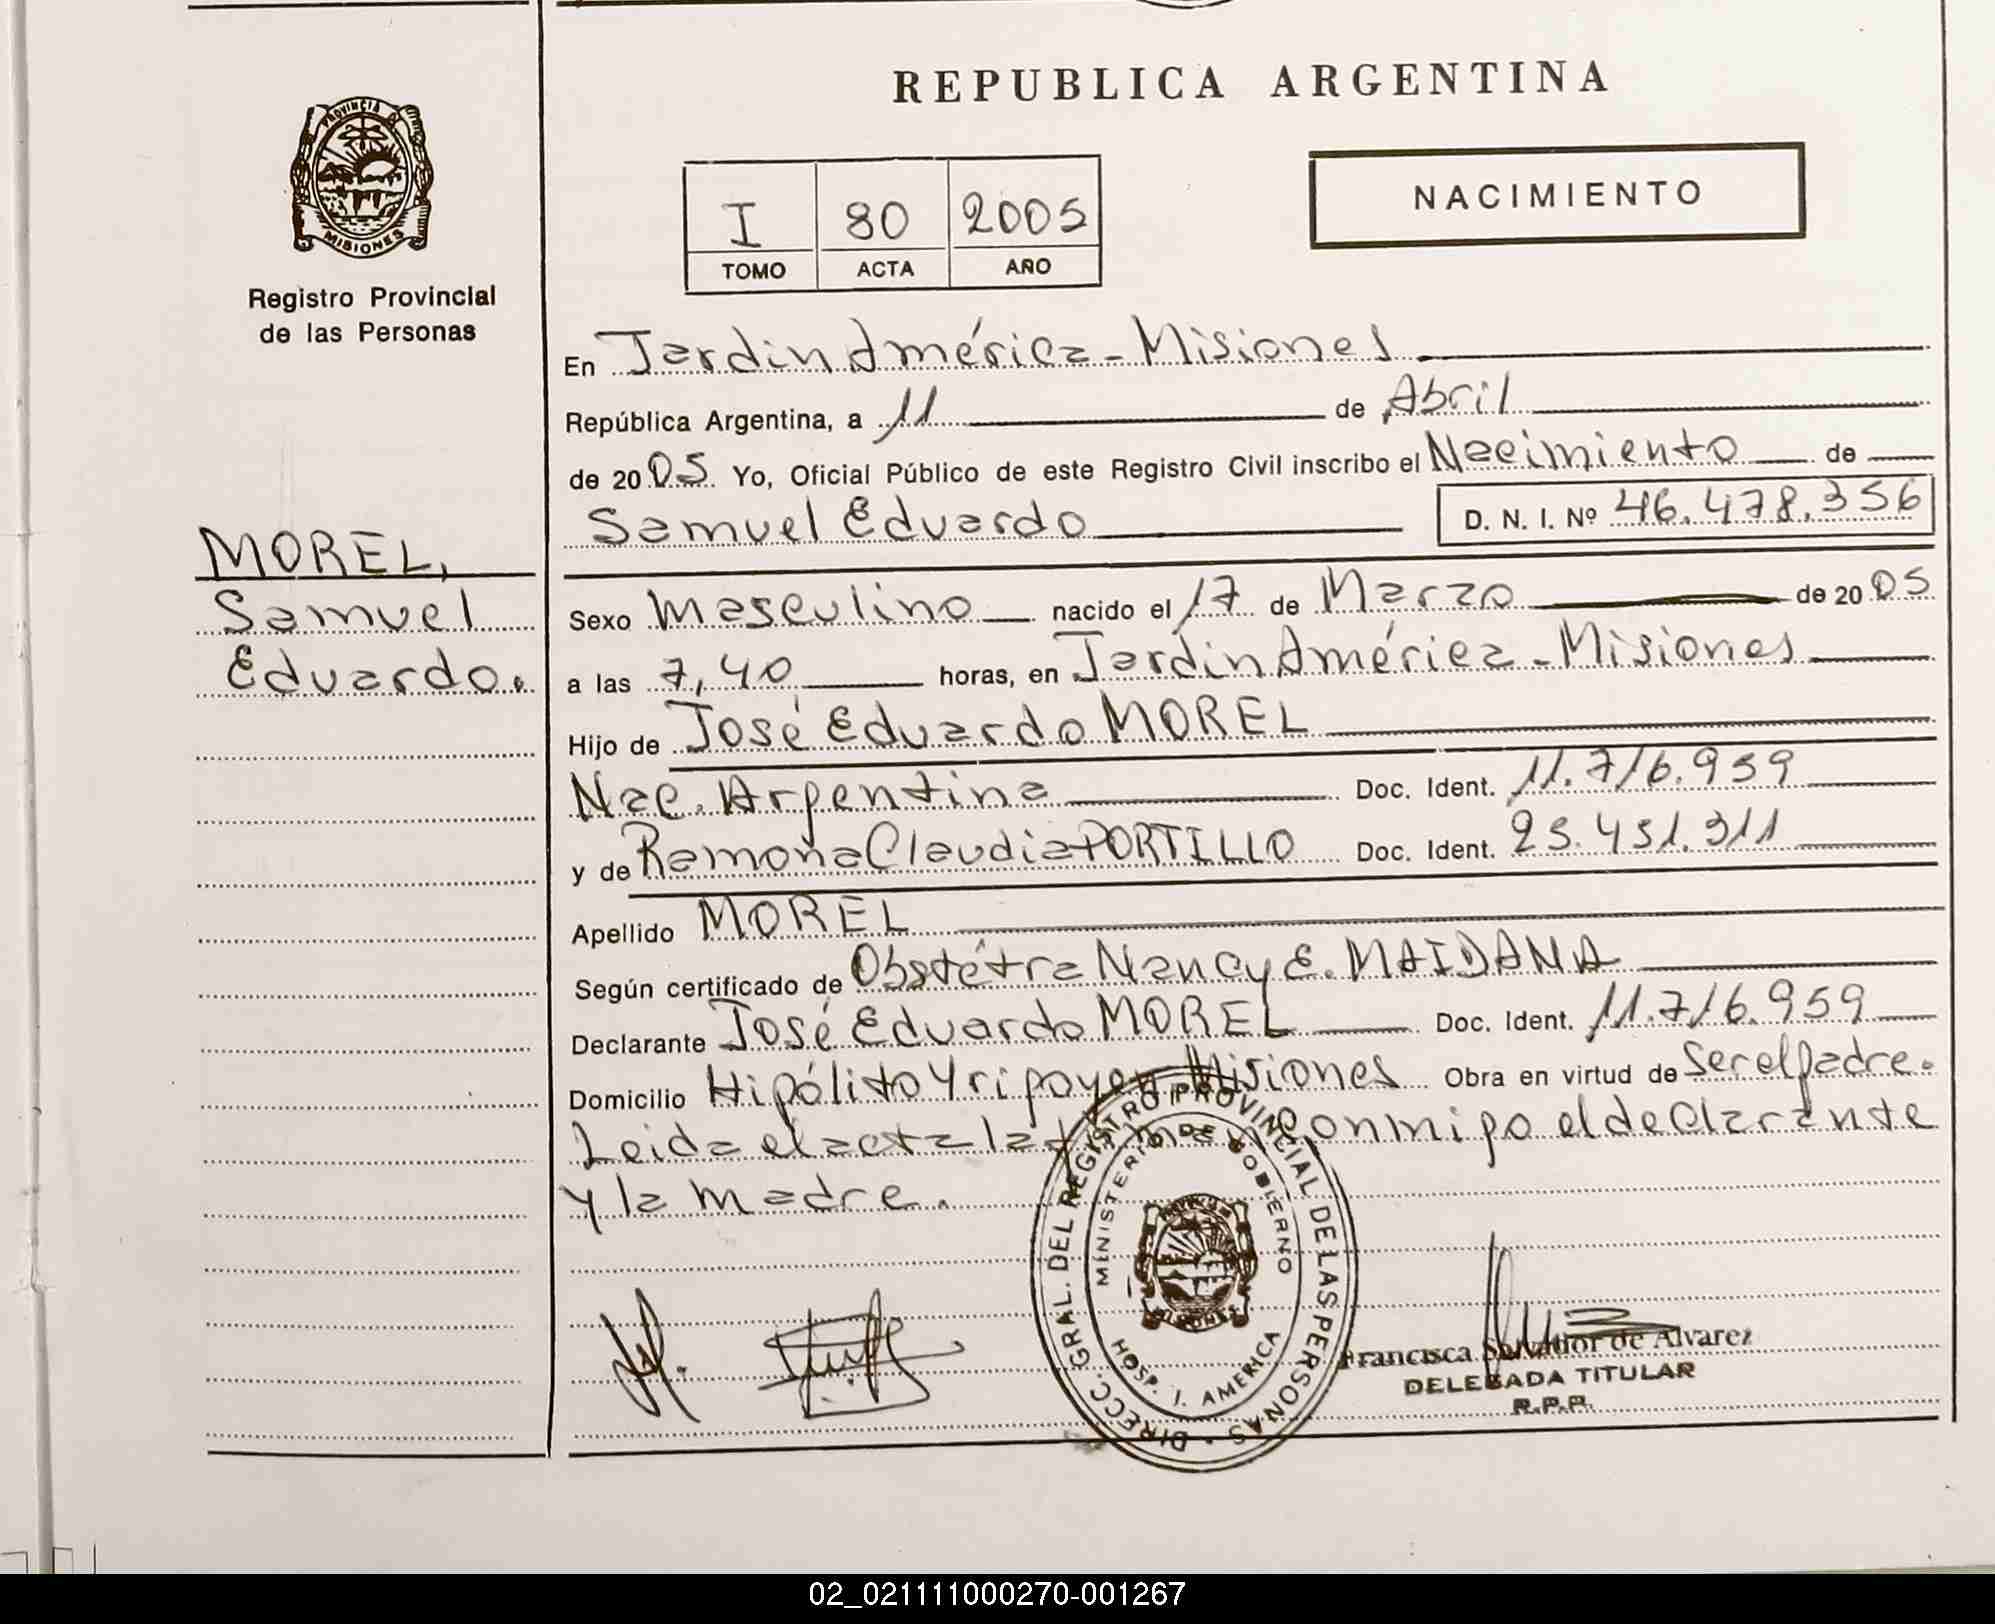 REPUBLICA ARGENTINA
PROVINCIA DE
MISIONES
Registro Provincial
de las Personas
I 80 2005
TOMO ACTA AÑO
NACIMIENTO
En Jardin América - Misiones
República Argentina, a 11 de Abril
de 2005 Yo, Oficial Público de este Registro Civil inscribo el Nacimiento de
Samuel Eduardo D. N. I. Nº 46.478.356
MOREL,
Samuel
Eduardo.
Sexo Masculino nacido el 17 de Marzo de 2005
a las 7,40 horas, en Jardin América - Misiones
Hijo de José Eduardo MOREL
Nac. Argentina Doc. Ident. 11.716.959
y de Ramona Claudia PORTILLO Doc. Ident. 25.451.311
Apellido MOREL
Según certificado de Obstétra Nancy E. MAIDANA
Declarante José Eduardo MOREL Doc. Ident. 11.716.959
Domicilio Hipólito Yrigoyen Misiones Obra en virtud de Ser el padre.
Leida el acta la conmigo el declarante
y la madre.
DIRECC. GRAL. DEL REGISTRO PROVINCIAL DE LAS PERSONAS
MINISTERIO DE GOBIERNO
HOSP. J. AMERICA
Francisca Salvador de Alvarez
DELEGADA TITULAR
R.P.P.
02_021111000270-001267